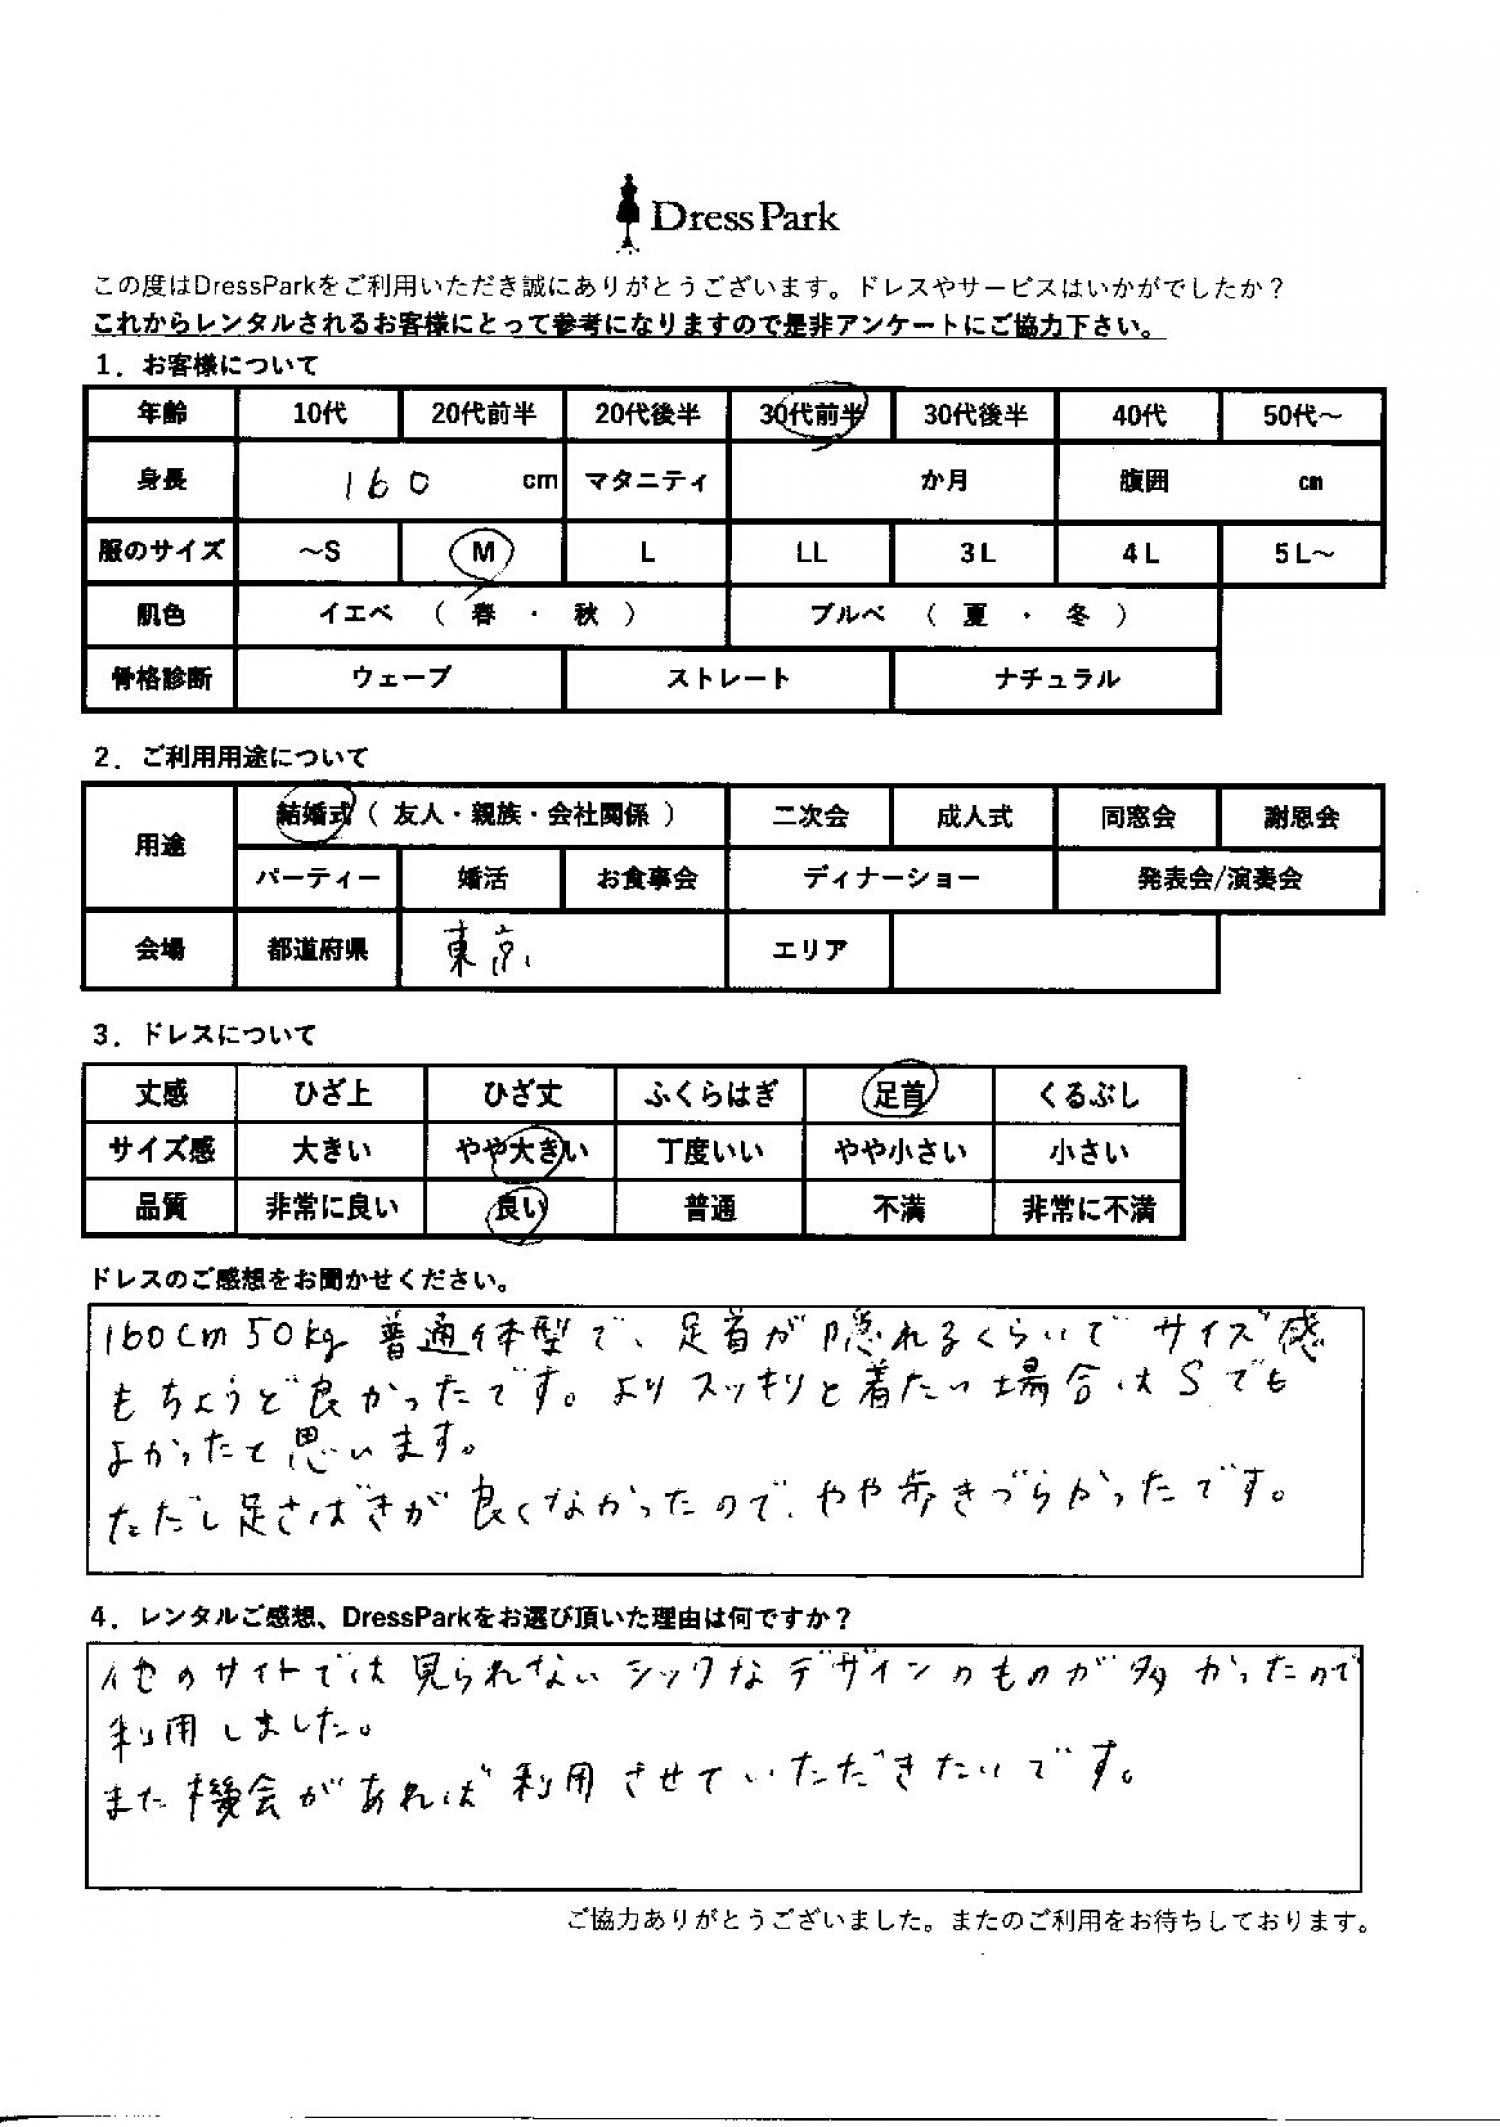 DressPark
この度はDressParkをご利用いただき誠にありがとうございます。ドレスやサービスはいかがでしたか？
これからレンタルされるお客様にとって参考になりますので是非アンケートにご協力下さい。
1．お客様について
年齢 10代 20代前半 20代後半 30代前半 30代後半 40代 50代～
身長 160 cm マタニティ か月 腹囲 cm
服のサイズ ～S M L LL 3L 4L 5L～
肌色 イエベ （ 春 ・ 秋 ） ブルベ （ 夏 ・ 冬 ）
骨格診断 ウェーブ ストレート ナチュラル
2．ご利用用途について
用途 結婚式（ 友人・親族・会社関係 ） 二次会 成人式 同窓会 謝恩会
パーティー 婚活 お食事会 ディナーショー 発表会/演奏会
会場 都道府県 東京 エリア
3．ドレスについて
丈感 ひざ上 ひざ丈 ふくらはぎ 足首 くるぶし
サイズ感 大きい やや大きい 丁度いい やや小さい 小さい
品質 非常に良い 良い 普通 不満 非常に不満
ドレスのご感想をお聞かせください。
160cm 50kg 普通体型で、足首が隠れるくらいでサイズ感
もちょうど良かったです。よりスッキリと着たい場合はSでも
よかったと思います。
ただし足さばきが良くなかったので、やや歩きづらかったです。
4．レンタルご感想、DressParkをお選び頂いた理由は何ですか？
他のサイトでは見られないシックなデザインのものが多かったので
利用しました。
また機会があれば利用させていただきたいです。
ご協力ありがとうございました。またのご利用をお待ちしております。